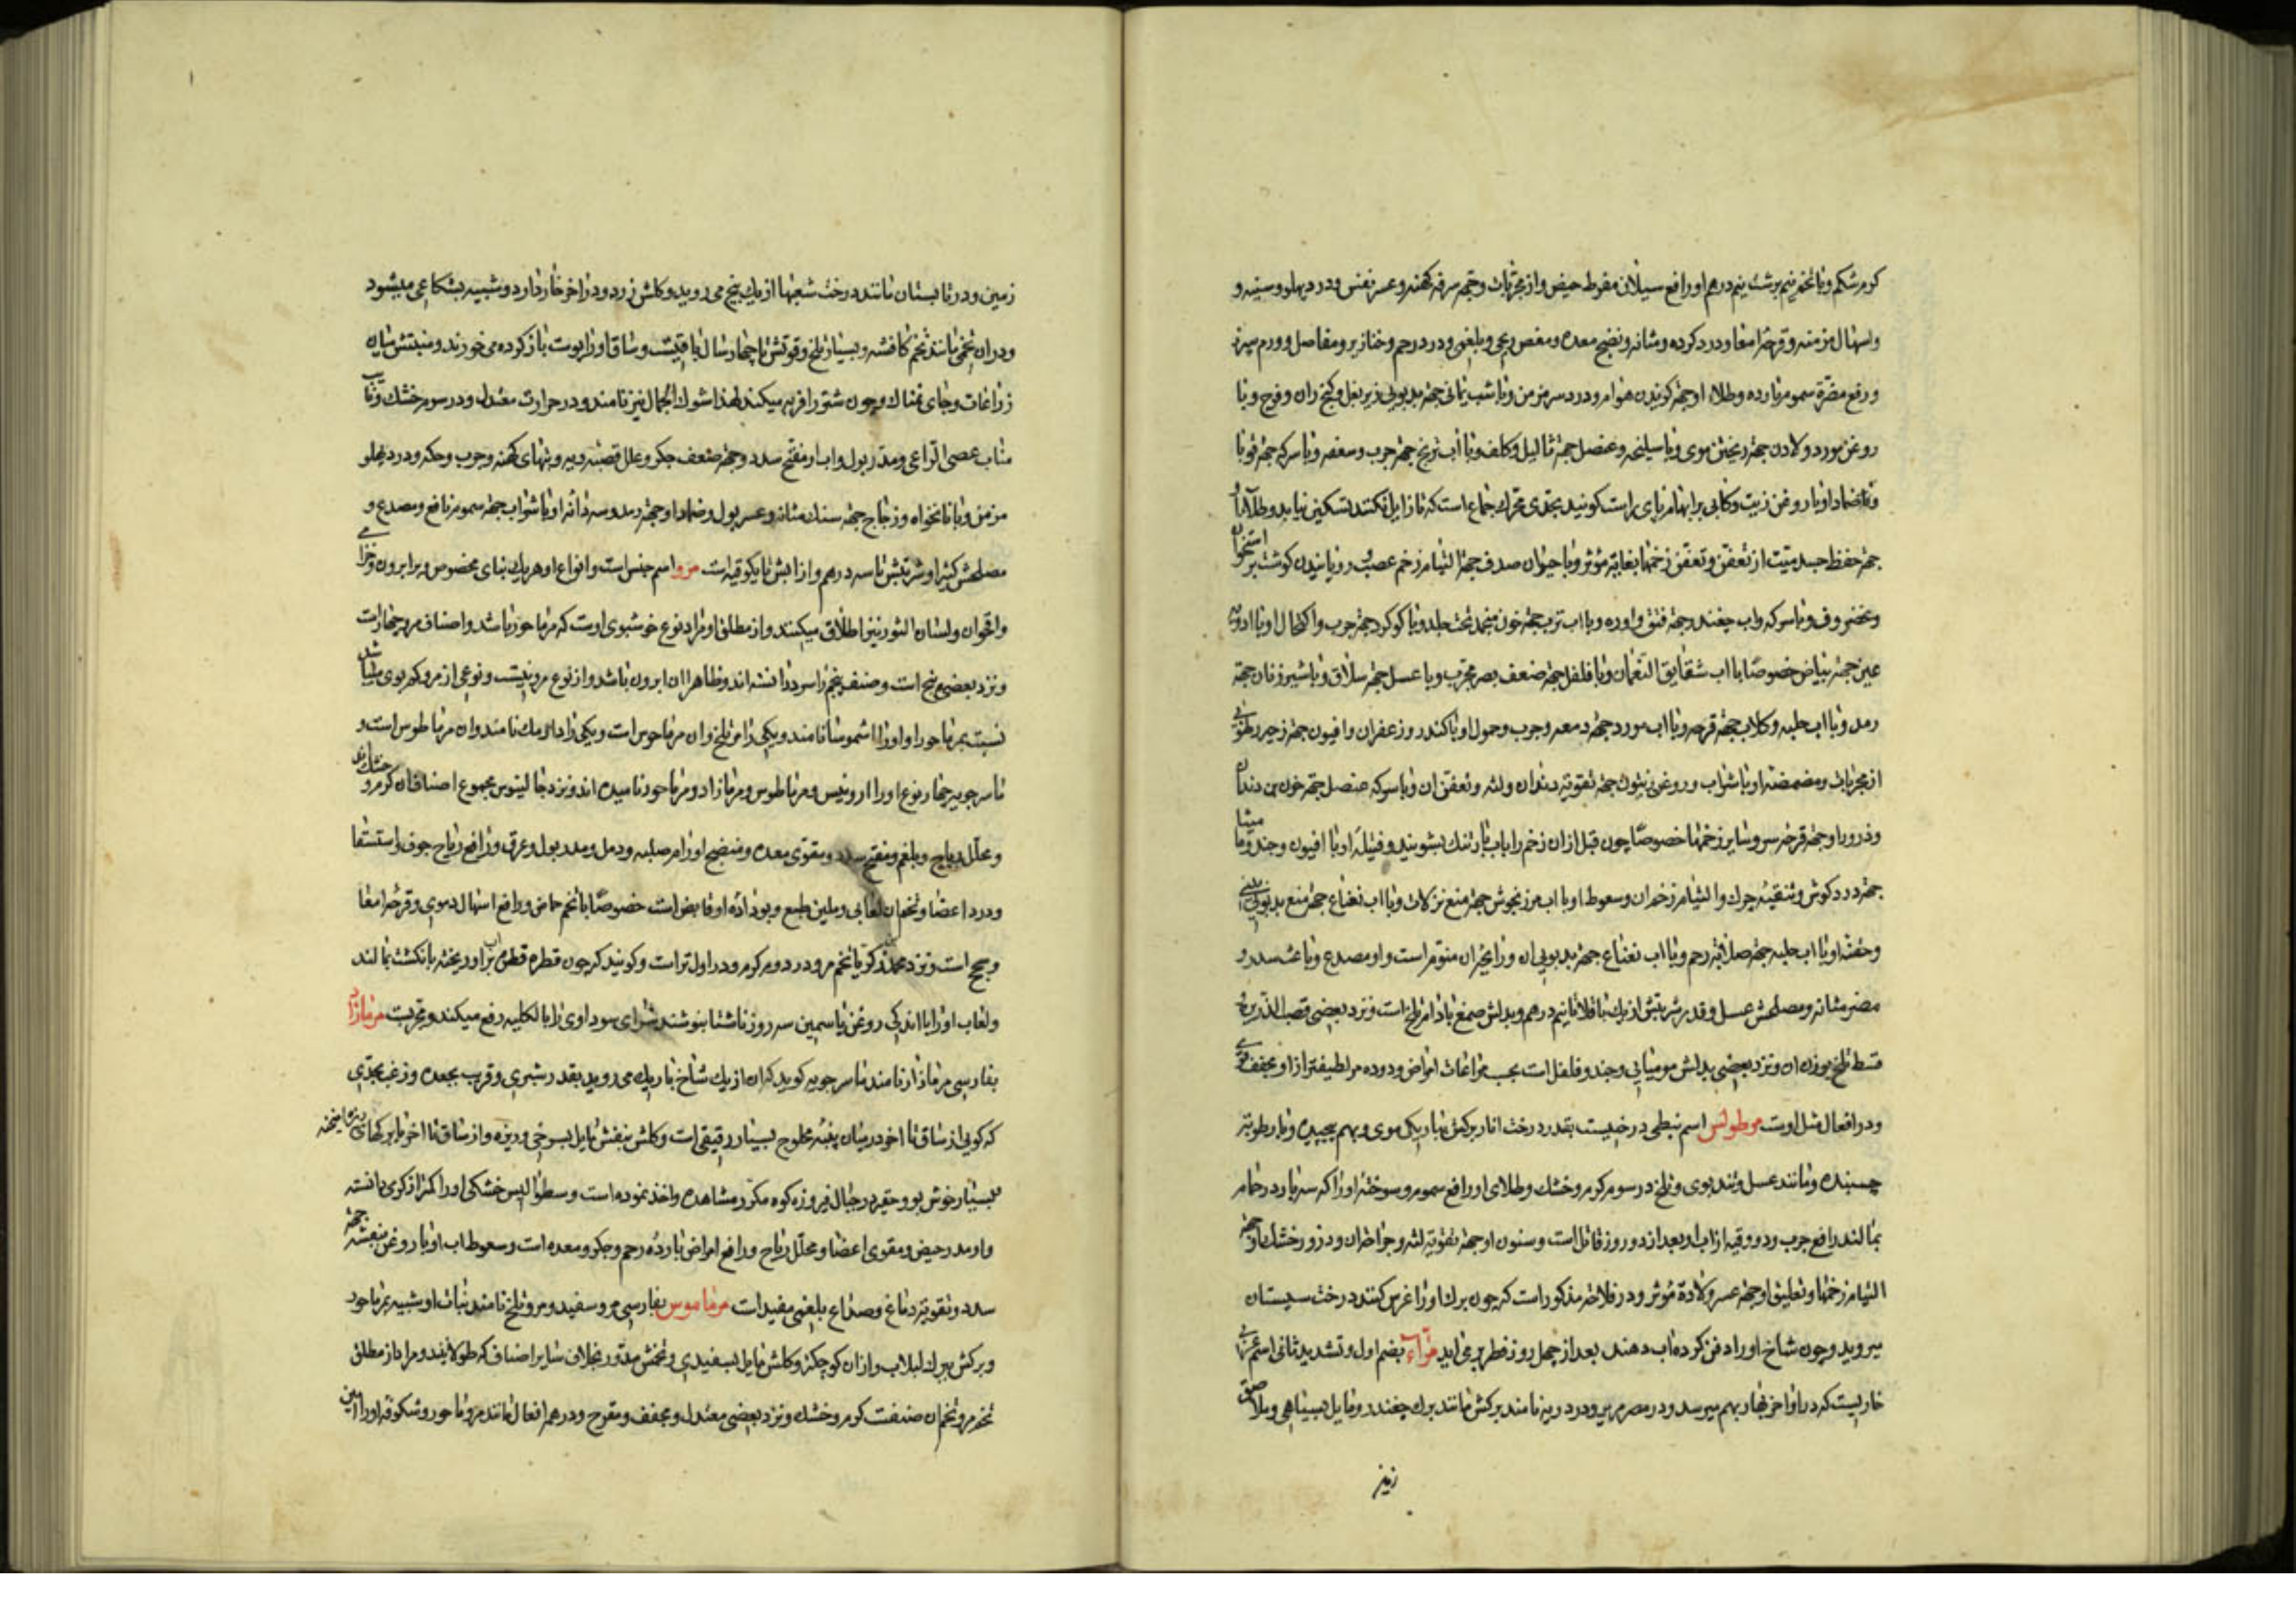 کرم شکم و با تخم نیم برشت نیم درهم او رافع سیلان مفرط حیض و از مجربات و جهة سرفه کهنه و عسر نفس و درد پهلو و سینه و
و اسهال مزمنه و قرحۀ امعا و درد کرده و مثانه و نضج معده و مغص ریحی و بلغمی و درد رحم و خنازیر و مفاصل و ورم سپرز
و رفع مضرة سموم بارده و طلاء او جهة کزیدن هوام و درد سر مزمن و با شب یمانی جهة بدبویی زیر بغل و کنج ران و فرج و با
روغن مورد و لادن جهة ریختن موی و با سلیخه و عنصل جهة ثالیل و کلف و با آب ترنج جهة جرب و سعفه و با سرکه جهة قوبا
و ضماد او با روغن زیت و کلابی بر ابهام پای راست کویند بحدی محرک جماع است که تا زایل نکنند تسکین نیابد و طلاء او
جهة حفظ جسد میت از تعفن و تعفن زخمها بغایة مؤثر و با حیوان صدف جهة التیام زخم عصب و رویانیدن کوشت بر استخوان
و غضروف و با سرکه و اب چغندر جهة فتق و اوره و با اب ترب جهة خون منجمد تحت جلد و با کوکرد جهة جرب و اکتحال او با ادویه
عین جهة بیاض خصوصا با اب شقایق النعمان و با فلفل جهة ضعف بصر مجرب و با عسل جهة سلاق و با شیر زنان جهة
رمد و با اب حلبه و کلاب جهة قرحه و با اب مورد جهة دمعه و جرب و حمول او با کندر و زعفران و افیون جهة زحیر رطوبی
از مجربات و مضمضه او با شراب و روغن زیتون جهة تقویة دندان و لثه و تعفن ان و با سرکه عنصل جهة خون بن دندان
و ذرور او جهة قرحه سر و سایر زخمها خصوصا چون قبل ازان زخم را باب بارتنک بشویند و فتیلۀ او با افیون و جند و مامیثا
جهة درد کوش و تنقیۀ چرک و التیام زخم ان و سعوط او با اب مرزنجوش جهة منع نزلات و با اب نعناع جهة منع بدبویی بینی
و حقنه او با اب حلبه جهة صلابة رحم و با اب نعناع جهة بدبویی ان و رایحۀ ان منوم است و او مصدع و باعث سدر و
مضر مثانه و مصلحش عسل و قدر شربتش از یک باقلا تا نیم درهم و بدلش صمغ بادام تلخ است و نزد بعضی قصب الذریره
قسط تلخ بوزن ان و نزد بعضی بدلش مومیایی و جند و فلفل است بحسب مراعات امراض و دوده مر لطیفتر از او و مجفف قوی
و در افعال مثل اوست مرطولس اسم نبطی درختیست بقدر درخت انار برکش بباریکی موی و بهم پیچیده و با رطوبة
چسبنده و مانند عسل و تند بوی و تلخ در سوم کرم و خشک و طلای او رافع سموم و سوختۀ او را که سه بار در حمام
بمالند رافع جرب و دو وقیه از اب او بعد از دو روز قاتل است و سنون او جهة تقویة لثه و جراحة ان و ذرور خشک او جهة
التیام زخمها و تعلیق او جهة عسر ولادة مؤثر و در فلاحة مذکور است که چون برک او را غرس کنند درخت سپستان
میروید و چون شاخ او را دفن کرده اب دهند بعد از چهل روز فطر برمی اید مرّاء بضم اول و تشدید ثانی اسم عربی
خاریست که در اواخر بهار بهم میرسد و در مصر مریر و درد ریه نامند برکش مانند برک چغندر و مایل بسیاهی و ملاصق
زمین
زمین و در تابستان مانند درخت شعبها از یک بیخ می روید و کلش زرد و در اخر خار دارد و شبیه بشکاعی میشود
و دران تخمی باشد بحجم کافشه و بسیار تلخ و قوتش تا چهار سال باقیست و ساق او را پوست باز کرده می خورند و منبتش میان
زراعات و جای نمناک و چون شتر را فربه میکند لهذا شوک الجمال نیز نامند و در حرارت معتدل و در سوم خشک و نایب
مناب عصی الراعی و مدر بول و اب او مفتح سدد و جهة ضعف جکر و علل قصبه ریه و تبهای کهنه و جرب و حکه و درد پهلو
مزمن و با نانخواه و زجاج جهة سنک مثانه و عسر بول و ضماد او جهة رمد و سه دانه او با شراب جهة سموم نافع و مصدع و
مصلحش کثیرا و شربتش تا سه درهم و از ابش تا یکوقیه است مرو اسم جنس است و انواع او هر یک بنامی مخصوص و بر ابرون و خزامی
و اقحوان و لسان الثور نیز اطلاق میکنند و از مطلق او مراد نوع خوشبوی اوست که مرماحوز باشد و اصناف مرو چهار است
و نزد بعضی پنج است و صنف پنجم را سرد دانسته اند و ظاهرا ان ابرون باشد و از نوع مرو نیست و نوعی از مرو کم بوی میباشد
نسبت بمرماحور او او را اشموسا نامند و یکی را مر تلخ و ان مرماحوس است و یکی را دارمک نامند و ان مرماطوس است و
ماسرجویه چهار نوع او را اردنیس و مرماطوس و مرمازاد و مرماحوز نامیده اند و نزد جالینوس مجموع اصناف ان کرم و خشک اند
و محلل ریاح و بلغم و مفتح سدد و مقوی معده و منضج اورام صلبه و دمل و مدر بول و عرق و رافع ریاح جوف و استسقا
و درد اعضا و تخم ان لعابی و ملین طبع و بو داده او قابض است خصوصا با تخم حماض و رافع اسهال دموی و قرحۀ امعا
و سحج است و نزد محمد زکریا تخم مرو در دوم کرم و در اول تر است و کویند که چون قطره قطره اب بر او ریخته بانکشت بمالند
و لعاب او را با اندکی روغن یاسمین سه روز ناشتا بنوشند شرای سوداوی را بالکلیه رفع میکند و مجربست مرمازاد
بفارسی مرمازاز نامند ماسرجویه کوید که ان از یک شاخ باریک می روید بقدر شبری و قریب بجعده و زغب بحدی
که کویی از ساق تا اخر در میان پنبۀ محلوج بسیار رقیقی است و کلش بنفش مایل بسرخی و ریزه و از ساق تا اخر با برکهای ریزه امیخته
بسیار خوش بو و حقیر در جبال فیروزه کوه مکرر مشاهده و اخذ نموده است و سطوالیس خشکی او را کمتر از کرمی دانسته
و او مدر حیض و مقوی اعضا و محلل ریاح و رافع امراض بارده رحم و جکر و معده است و سعوط اب او با روغن بنفشه جهة
سدد و تقویة دماغ و صداع بلغمی مفید است مرماموس بفارسی مرو سفید و مرو تلخ نامند نبات او شبیه بمرماحوز
و برکش ببرک لبلاب و از ان کوچکتر و کلش مایل بسفیدی و تخمش مدور بخلاف سایر اصناف که طولانیند و مراد از مطلق
تخم مرو تخم ان صنفست کرم و خشک و نزد بعضی معتدل و مجفف و مفرح و در همه افعال مانند مرماحوز و شکوفه او را